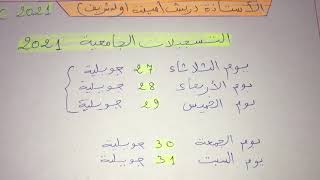 الأستاذة دريش أمينة (ولد شريف) 2021
التسجيلات الجامعية 2021
يوم الثلاثاء 27 جويلية
يوم الأربعاء 28 جويلية
يوم الخميس 29 جويلية
يوم الجمعة 30 جويلية
يوم السبت 31 جويلية